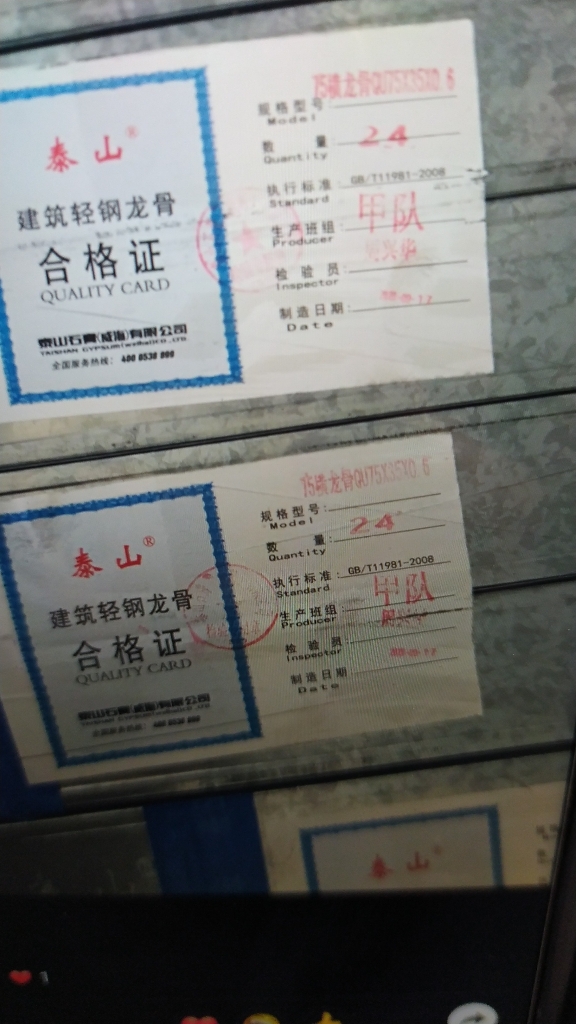 泰山®
建筑轻钢龙骨
合格证
QUALITY CARD
泰山石膏(威海)有限公司
全国服务热线: 400 0538 999
75横龙骨QU75X35X0.6
规格型号:
Model
数 量: 24
Quantity
执行标准: GB/T11981-2008
Standard
生产班组: 甲队
Producer
检验员:
Inspector
制造日期:
Date
泰山®
建筑轻钢龙骨
合格证
QUALITY CARD
泰山石膏(威海)有限公司
75横龙骨QU75X35X0.6
规格型号:
Model
数 量: 24
Quantity
执行标准: GB/T11981-2008
Standard
生产班组: 甲队
Producer
检验员
Inspector
制造日期
Date
泰山